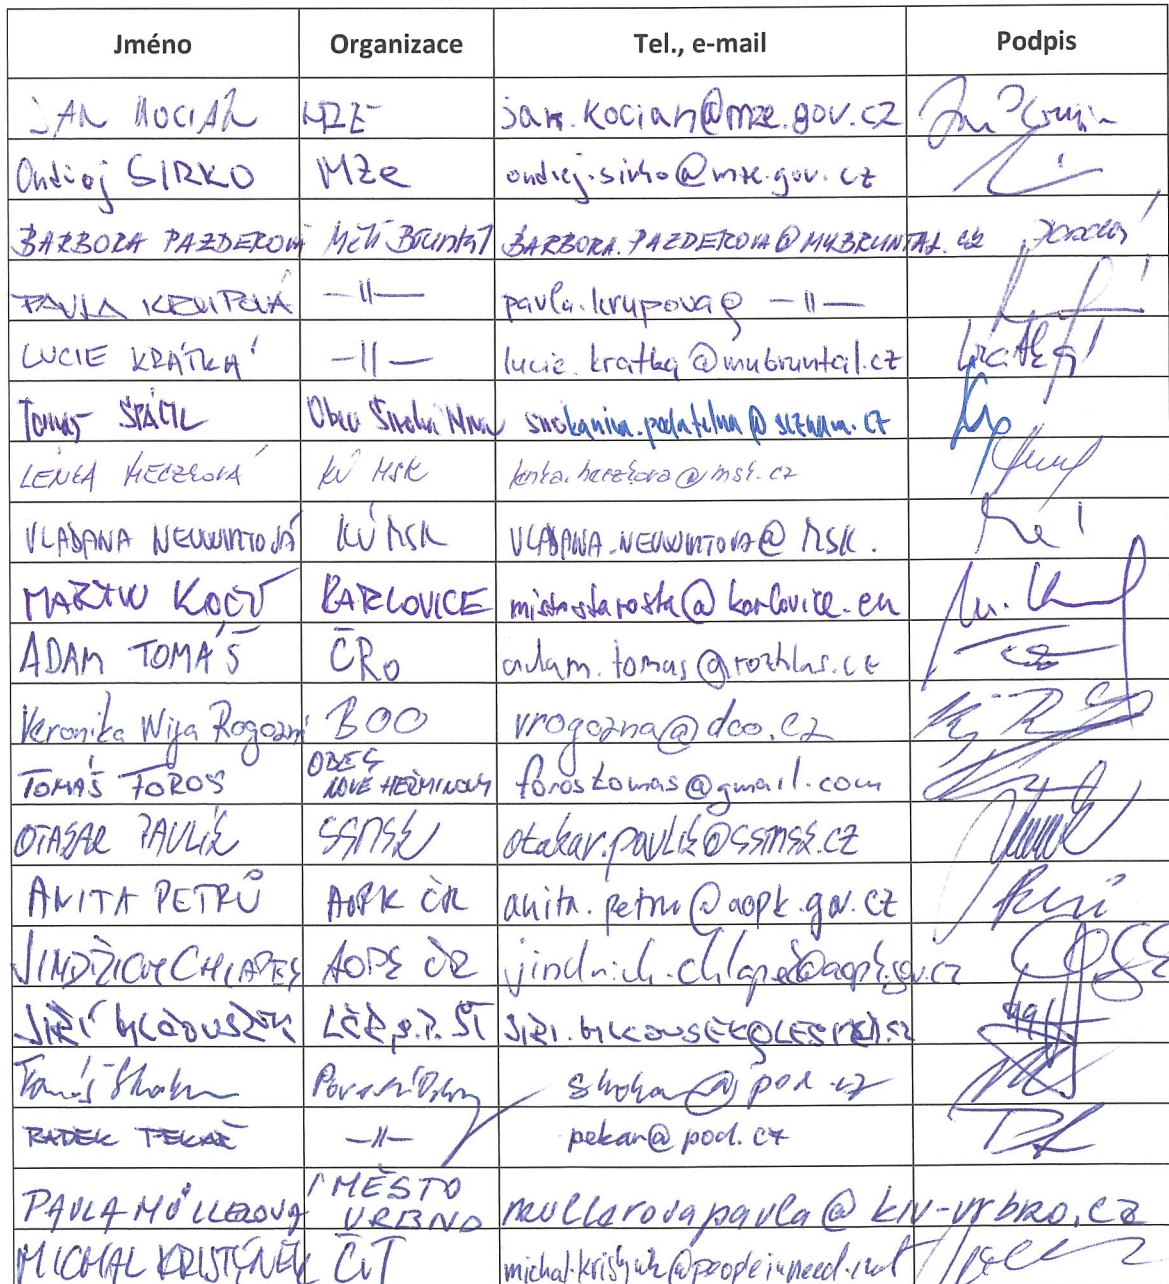 Jméno Organizace Tel., e-mail Podpis
JAN KOCIÁN MZE jan.kocian@mze.gov.cz
Ondřej SIRKO MZe ondrej.sirko@mze.gov.cz
BARBORA PAZDEROVÁ MěÚ Bruntál BARBORA.PAZDEROVA@MUBRUNTAL.CZ
PAVLA KRUPOVÁ —11— pavla.krupova@ —11—
LUCIE KRÁTKÁ —11— lucie.kratka@mubruntal.cz Krátká
Tomáš Obec Široká Niva sirokaniva.podatelna@seznam.cz
LENKA HECZKOVÁ KÚ MSK lenka.heczkova@msk.cz
VLADANA NEUWIRTOVÁ KÚ MSK VLADANA.NEUWIRTOVA@MSK.
MARTIN KOČÍ KARLOVICE mistostarosta@karlovice.eu
ADAM TOMÁŠ ČRo adam.tomas@rozhlas.cz
Veronika Wija Rogozná DOO vrogozna@dco.cz
TOMÁŠ FOROŠ OBEC NOVÉ HEŘMINOVY forostomas@gmail.com
OTAKAR PAVLÍK SSMSK otakar.pavlik@ssmsk.cz
ANITA PETRŮ AOPK ČR anita.petru@aopk.gov.cz
JINDŘICH CHLAPEK AOPK ČR jindrich.chlapek@aopk.gov.cz
JIŘÍ LČR s.p. ŠT
Tomáš Skokan Povodí Odry skokan@pod.cz
RADEK PEKAŘ —11— pekar@pod.cz
PAVLA MÜLLEROVÁ MĚSTO VRBNO mullerovapavla@kiv-vrbno.cz
MICHAL KRIŠTÝNEK ČvT